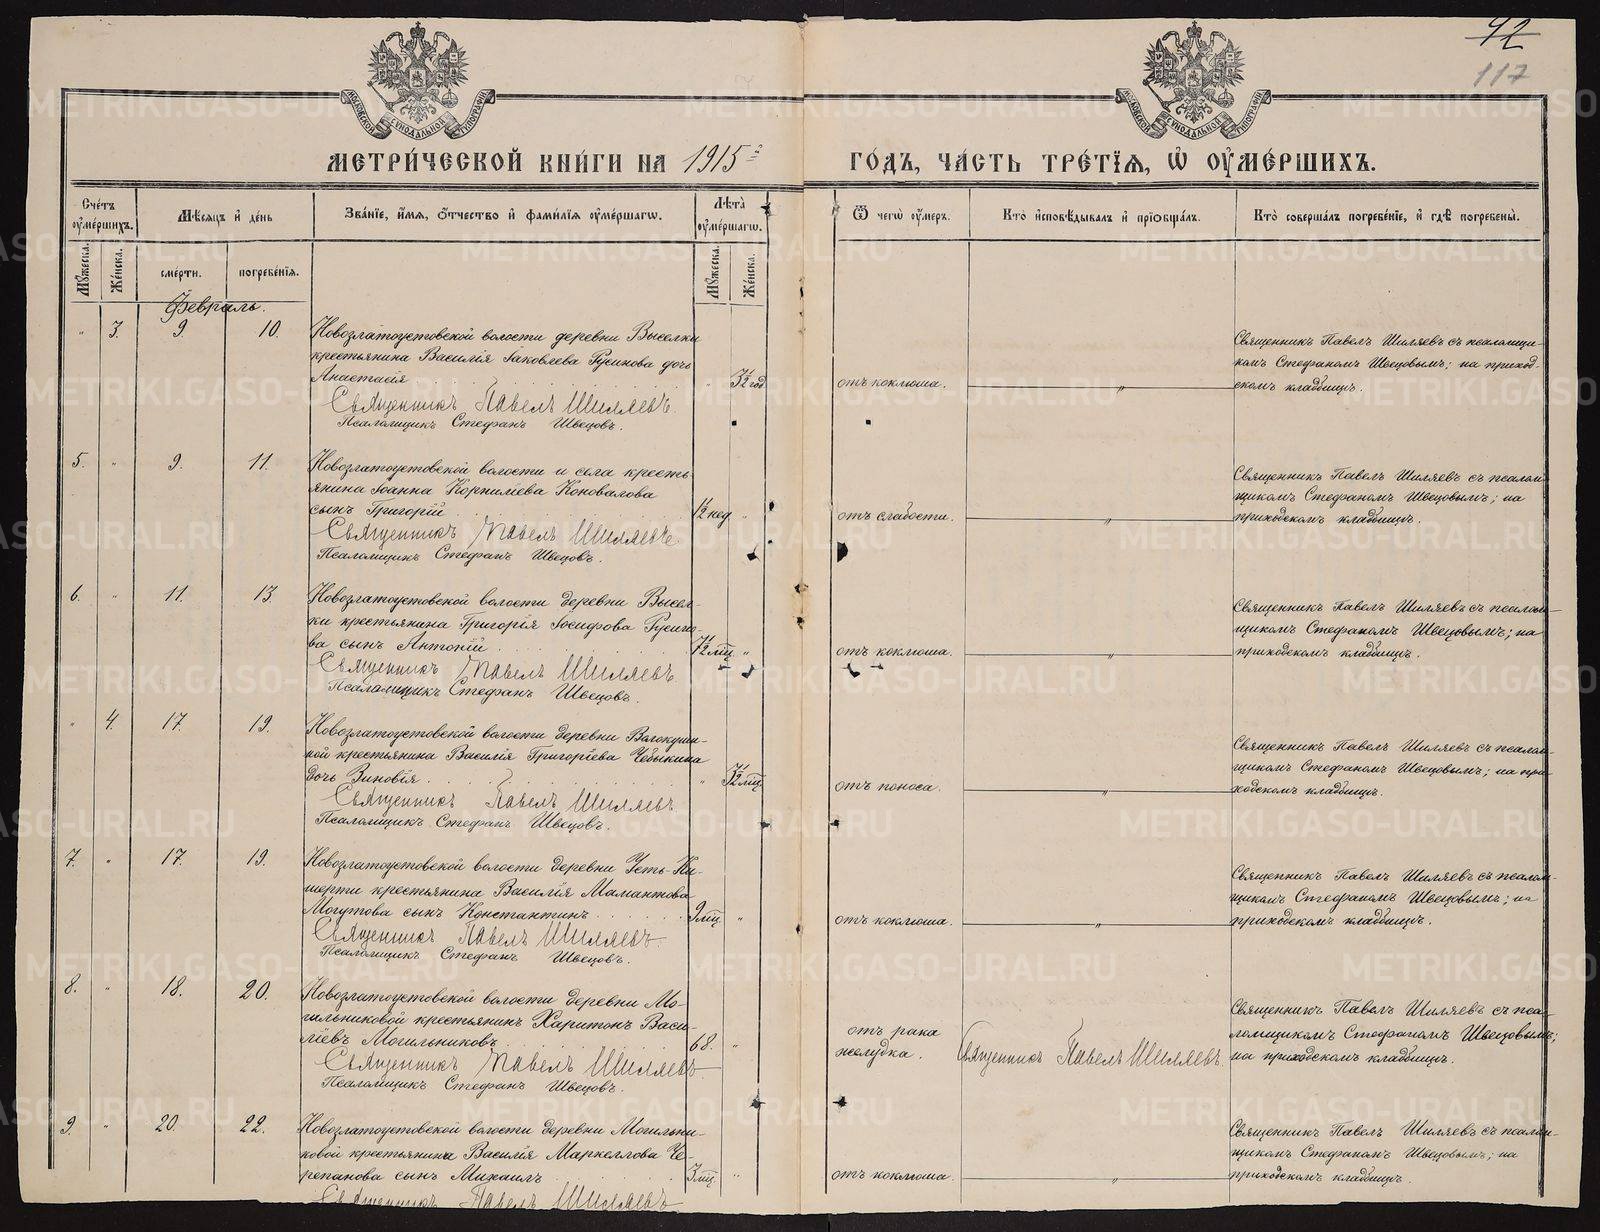 42
117
МОСКОВСКОЙ СѴНОДАЛЬНОЙ ТИПОГРАФІИ
МОСКОВСКОЙ СѴНОДАЛЬНОЙ ТИПОГРАФІИ
МЕТРИ́ЧЕСКОЙ КНИ́ГИ НА 1915 ГО́ДЪ, ЧА́СТЬ ТРЕ́ТІѦ, Ѡ҆ ОУ҆МЕ́РШИХЪ.
Сче́тъ оу҆ме́ршихъ.
Мѣ́сѧцъ и҆ де́нь
Зва́нїе, и҆́мѧ, ѻ҆́тчество и҆ фами́лїѧ оу҆ме́ршагѡ.
Лѣ́та оу҆ме́ршагѡ.
Ѿ чегѡ̀ оу҆́меръ.
Кто̀ и҆сповѣ́дывалъ и҆ прїѡбща́лъ.
Кто̀ соверша́лъ погребе́нїе, и҆ гдѣ̀ погребены̀.
Мꙋ́жеска.
Же́нска.
сме́рти.
погребе́нїѧ.
Мꙋ́жеска.
Же́нска.
Февраль.
" 3. 9. 10. Новозлатоустовской волости деревни Выселки
крестьянина Василія Іаковлева Русинова дочь
Анастасія
Священникъ Павелъ Шиляевъ.
Псаломщикъ Стефанъ Швецовъ.
отъ коклюша. "
Священникъ Павелъ Шиляевъ съ псаломщи-
комъ Стефаномъ Швецовымъ; на приход-
скомъ кладбищѣ.
5. " 9. 11. Новозлатоустовской волости и села кресть-
янина Іоанна Корниліева Коновалова
сынъ Григорій
Священникъ Павелъ Шиляевъ.
Псаломщикъ Стефанъ Швецовъ.
½ нед. "
отъ слабости. "
Священникъ Павелъ Шиляевъ съ псалом-
щикомъ Стефаномъ Швецовымъ; на
приходскомъ кладбищѣ.
6. " 11. 13. Новозлатоустовской волости деревни Высел-
ки крестьянина Григорія Іосифова Русино-
ва сынъ Антоній
Священникъ Павелъ Шиляевъ
Псаломщикъ Стефанъ Швецовъ.
отъ коклюша. "
Священникъ Павелъ Шиляевъ съ псалом-
щикомъ Стефаномъ Швецовымъ; на
приходскомъ кладбищѣ.
" 4. 17. 19. Новозлатоустовской волости деревни Волокуши-
ной крестьянина Василія Григоріева Чебыкина
дочь Зиновія
Священникъ Павелъ Шиляевъ
Псаломщикъ Стефанъ Швецовъ.
отъ поноса. "
Священникъ Павелъ Шиляевъ съ псалом-
щикомъ Стефаномъ Швецовымъ; на при-
ходскомъ кладбищѣ.
7. " 17. 19. Новозлатоустовской волости деревни Усть-Ки-
шерти крестьянина Василія Мамантова
Могутова сынъ Константинъ
Священникъ Павелъ Шиляевъ.
Псаломщикъ Стефанъ Швецовъ.
9 мц. "
отъ коклюша. "
Священникъ Павелъ Шиляевъ съ псалом-
щикомъ Стефаномъ Швецовымъ; на
приходскомъ кладбищѣ.
8. " 18. 20. Новозлатоустовской волости деревни Мо-
гильниковой крестьянинъ Харитонъ Васи-
ліевъ Могильниковъ
Священникъ Павелъ Шиляевъ
Псаломщикъ Стефанъ Швецовъ.
68. "
отъ рака
желудка.
Священникъ Павелъ Шиляевъ.
Священникъ Павелъ Шиляевъ съ пса-
ломщикомъ Стефаномъ Швецовымъ;
на приходскомъ кладбищѣ.
9. " 20. 22. Новозлатоустовской волости деревни Могильни-
ковой крестьянина Василія Маркеллова Че-
репанова сынъ Михаилъ
Священникъ Павелъ Шиляевъ
3 мц. "
отъ коклюша. "
Священникъ Павелъ Шиляевъ съ псалом-
щикомъ Стефаномъ Швецовымъ; на
приходскомъ кладбищѣ.
METRIKI.GASO-URAL.RU